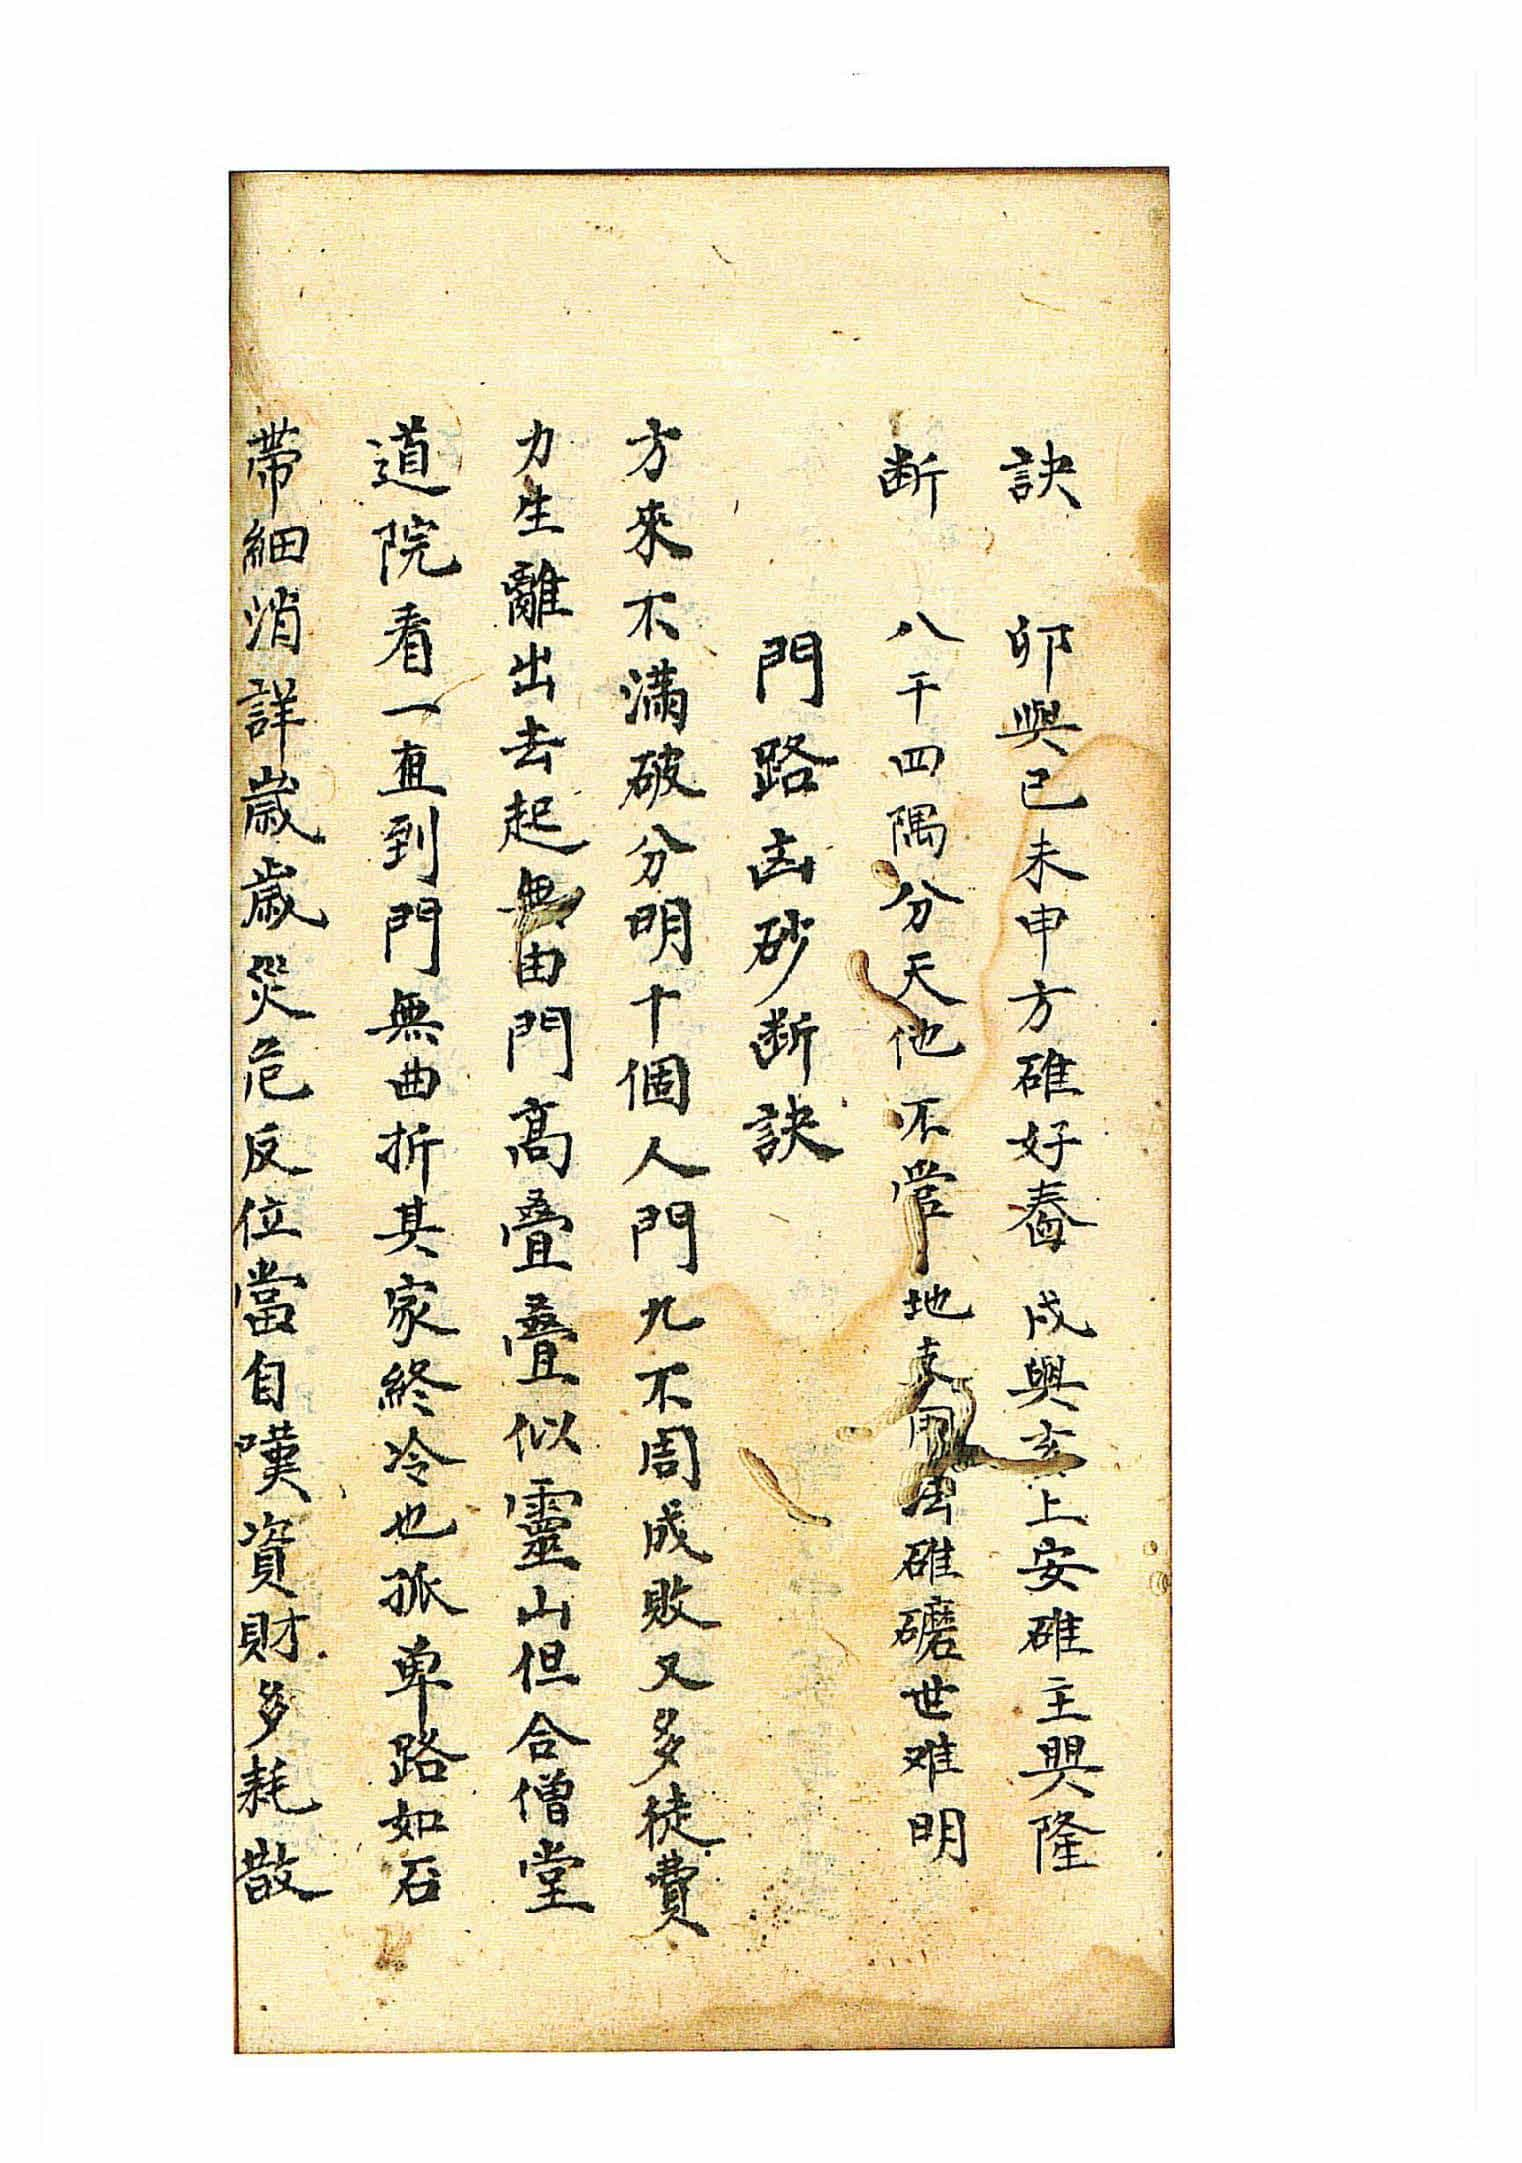 訣　卯與已未申方碓好舂　戌與亥上安碓主興隆
断　八干四隅分天他不管地支用碓磨世难明
門路凶砂断訣
方來不满破分明十個人門九不周成敗又多徒費
力生離出去起無由門高疊疊似靈山但合僧堂
道院看一直到門無曲折其家終冷也孤単路如石
帶細消詳歲歲災危反位當自嘆資財多耗散